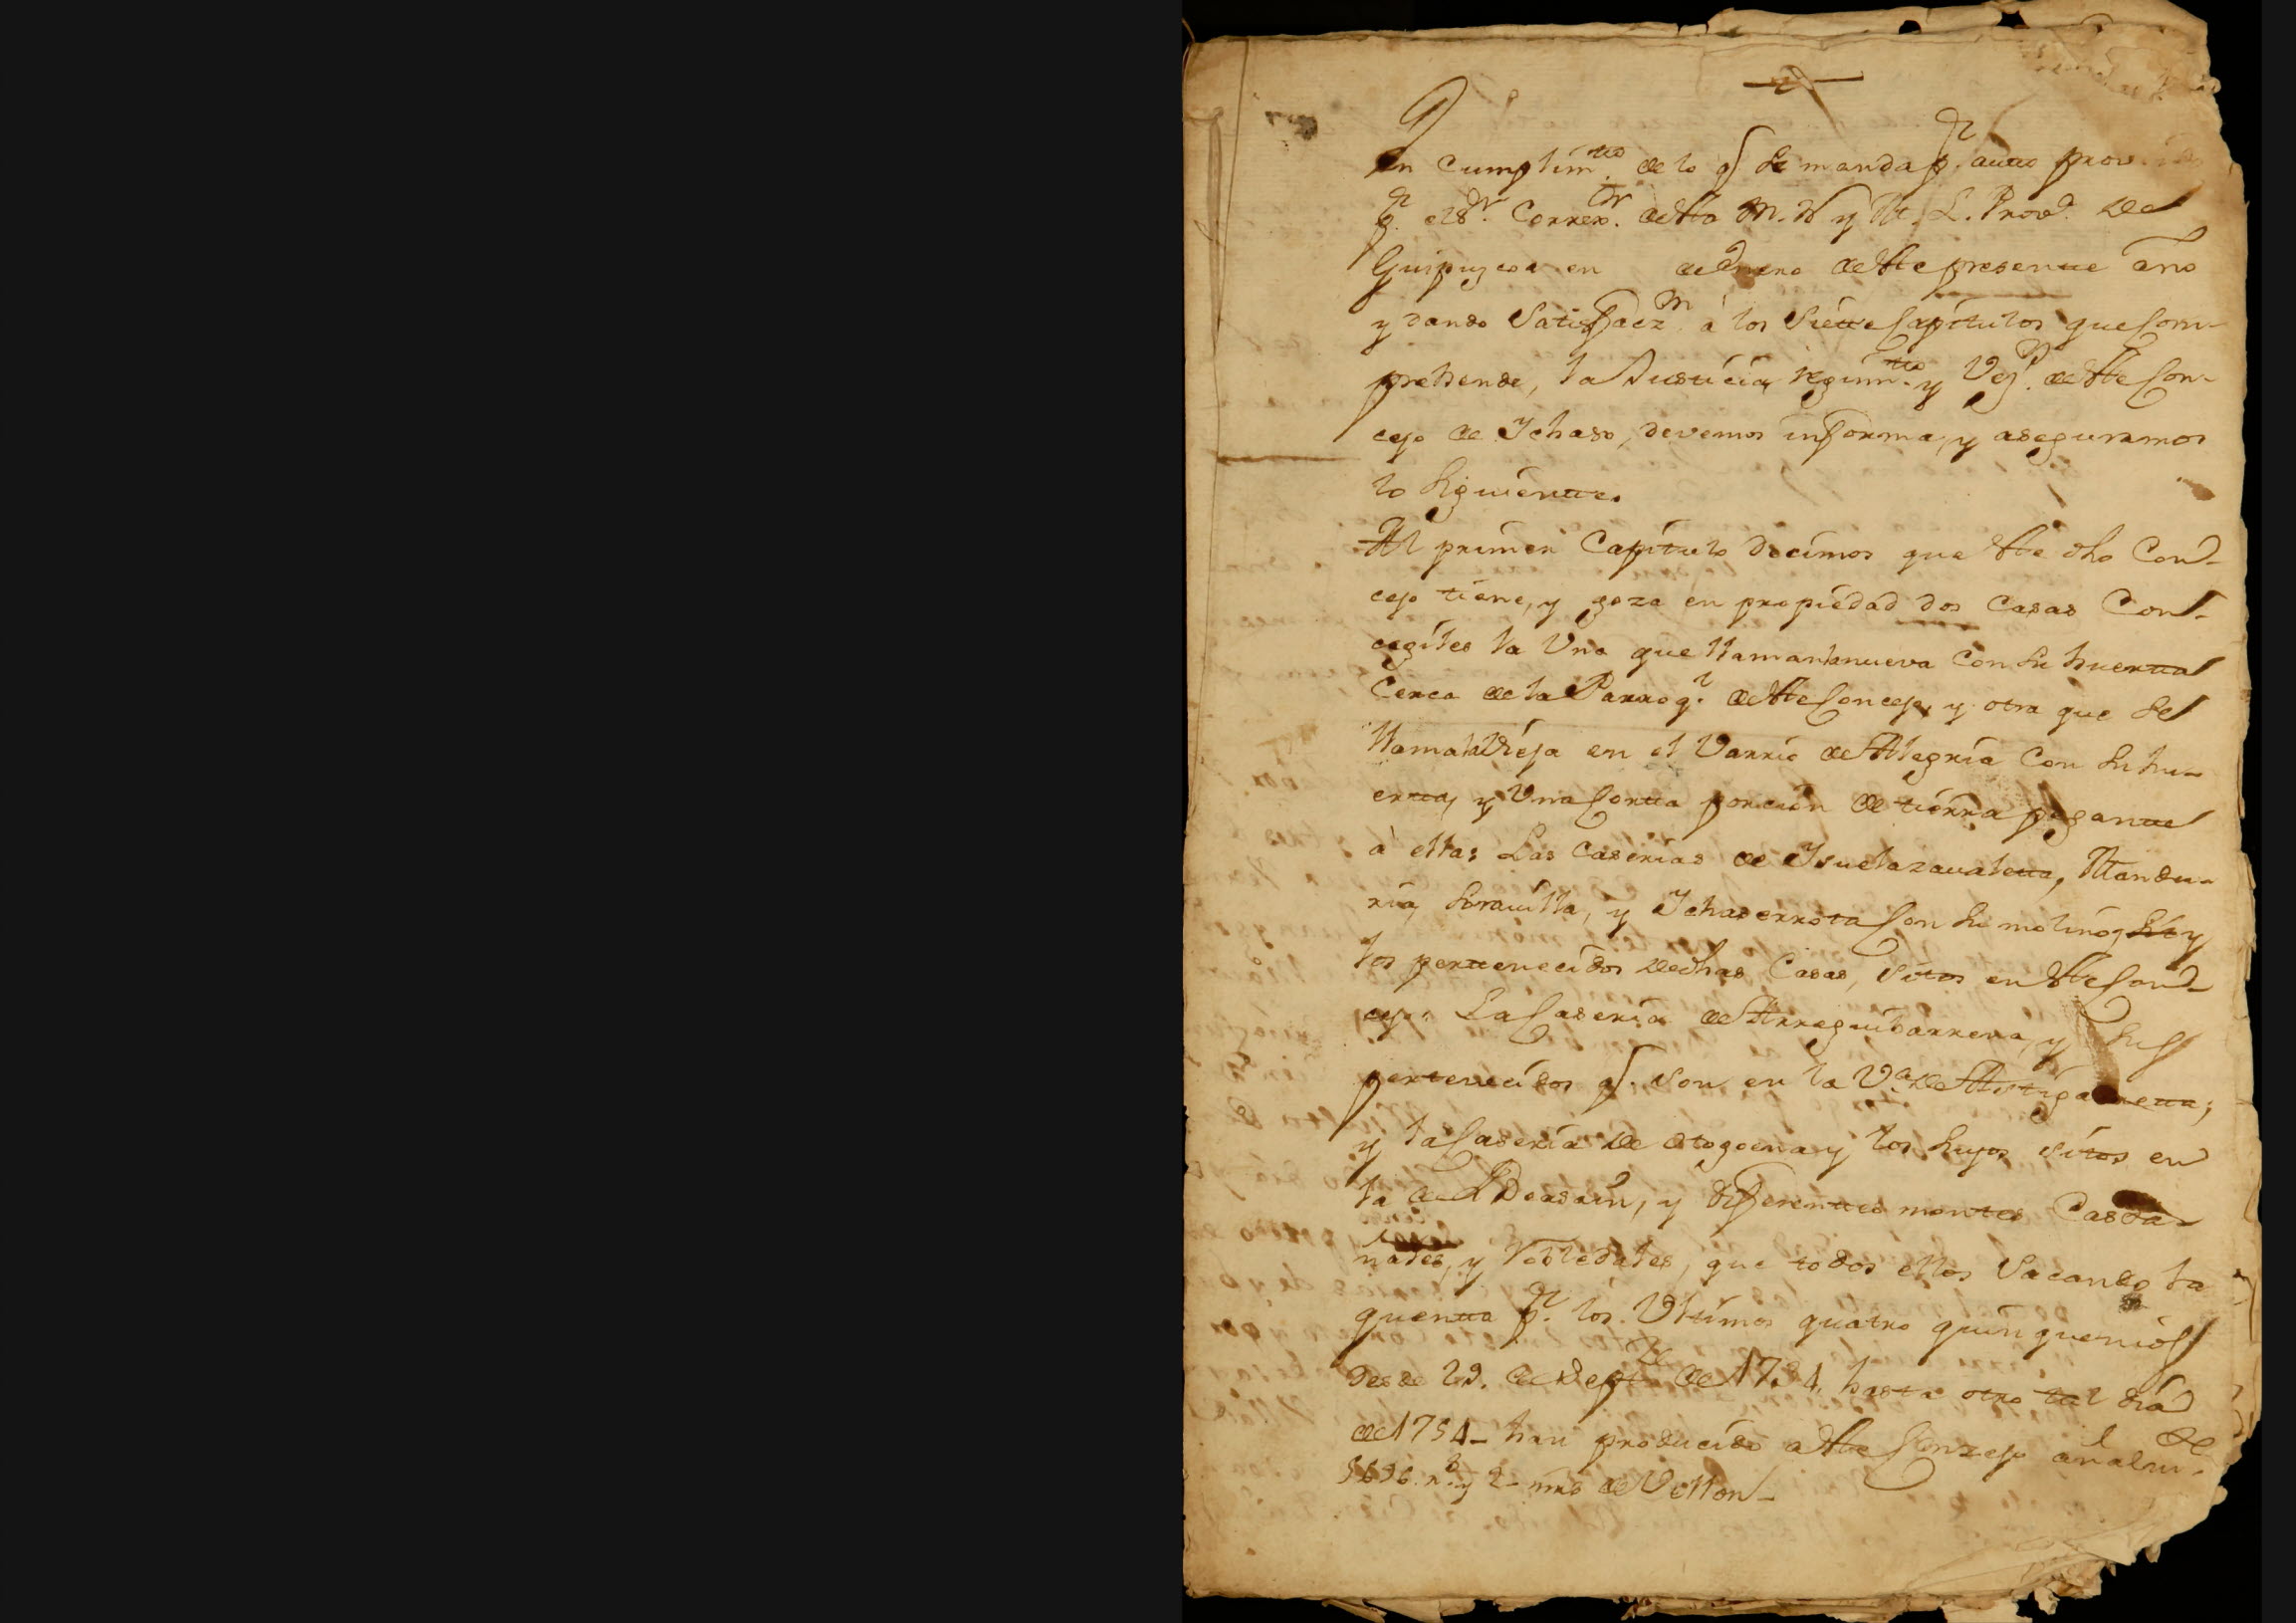 En cumplim.to de lo q se manda p.r auto prov
p.r el S.r Correx.or de esta M. N. y M. L. Prov.a de
Guipuzcoa en de Enero de este presente año
y dando Satisfacz.n à los Siete Capitulos que Com-
prehende, la Justicia, regim.to y Vez.s de este Con-
cejo de Ichaso, devemos informar, y aseguramos
lo siguiente.
Al primer Capitulo decimos que este dho Con-
cejo tiene, y goza en propiedad dos Casas Con-
cegiles la Una que llaman la nueva con su huerta
Cerca de la Parroq.l de este Concejo, y otra que se
llama la Vieja en el Varrio de Alegria con su hu-
erta, y Una Corta porcion de tierra pegante
à ellas Las Caserias de Isuelazavaleta, Mandu-
ria, y Ichaserrota Con su molino, y
los pertenecidos de dhas Casas, sitos en este Con-
cejo: La Caseria de Arreguibarrena, y sus
pertenecidos q. son en la V.a de Astigarreta,
y la Caseria de y los suyos sitos en
la de Veasain, y diferentes montes Casta-
ñales, y Robledales, que todos ellos Sacando la
quenta p.r los Ultimos quatro quinquenios
desde 29. de Sept.re de 1734. hasta otro tal dia
de 1754- han producido à este Conzejo
y 2- mrs de Vellon-